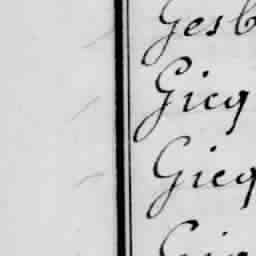 Gesb
Gicq
Gicq